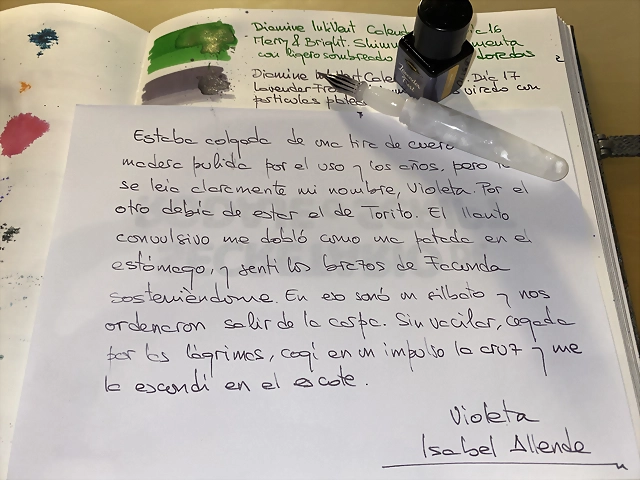 Diamine InkVent Calend
Merry & Bright. Shimm menta
con ligero sombreado doradas
Diamine InkVent Cale Dic 17
Lavender Fro uireo con
partículas plate
Estaba colgada de una tira de cuero
madera pulida por el uso y los años, pero
se leía claramente mi nombre, Violeta. Por el
otro debía de estar el de Torito. El llanto
convulsivo me dobló como una patada en el
estómago, y sentí los brazos de Facunda
sosteniéndome. En eso sonó un silbato y nos
ordenaron salir de la carpa. Sin vacilar, cegada
por las lágrimas, cogí en un impulso la cruz y me
la escondí en el escote.
Violeta
Isabel Allende